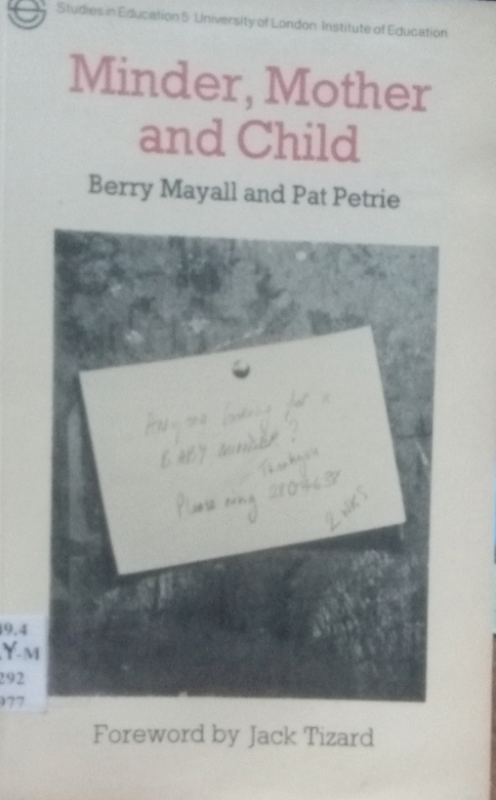 Studies in Education 5 University of London Institute of Education
Minder, Mother
and Child
Berry Mayall and Pat Petrie
Anyone looking for a
BABY minder?
Please ring 2804638
2 WKS
49.4
Y-M
292
977
Foreword by Jack Tizard